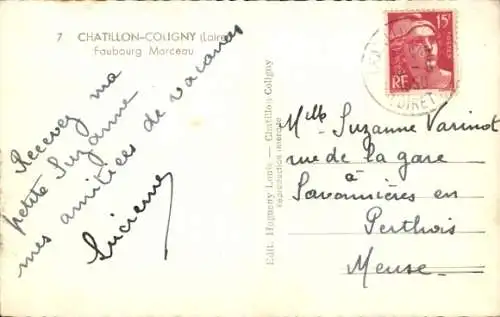 7 CHATILLON-COLIGNY (Loire
Faubourg Marceau
Recevez ma
petite Suzanne
mes amitiés de vacances
Lucienne
Edit. Hugueny Louis — Chatillon-Coligny
Reproduction interdite
15F
POSTES
RF
LOIRET
Mlle Suzanne Varinot
rue de la gare
à
Savonnières en
Perthois
Meuse